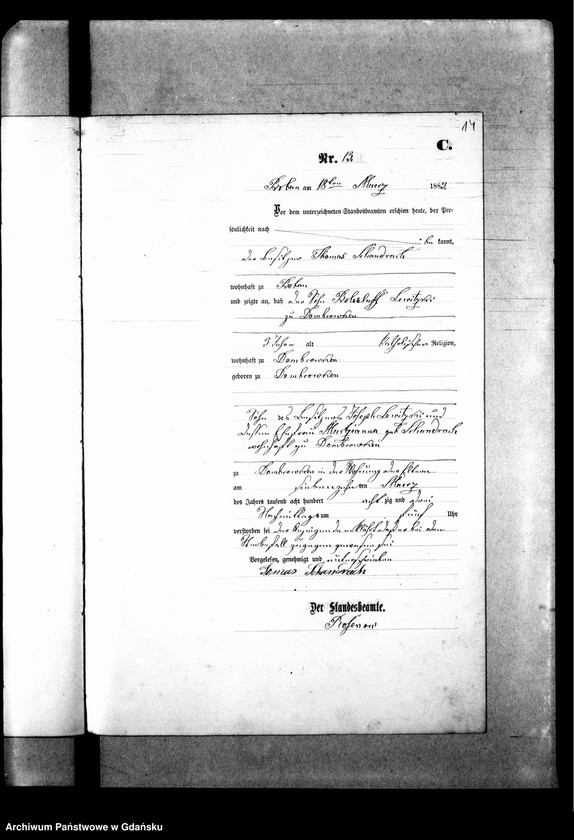 14
C.
Nr. 13
Boben am 18ten Maerz 1882
Vor dem unterzeichneten Standesbeamten erschien heute, der Per-
sönlichkeit nach
be kannt,
der Besitzer Thomas Schandrach
wohnhaft zu Boben
und zeigte an, daß der Sohn Boleslaff
zu Dombrowken
3 Jahre alt katholischer Religion,
wohnhaft zu Dombrowken
geboren zu Dombrowken
Sohn des Besitzers Joseph und
dessen Ehefrau Marianna geb Schandrach
wohnhaft zu Dombrowken
zu Dombrowken in der Wohnung der Eltern
am siebenzehnten Maerz
des Jahres tausend acht hundert acht zig und zwei
Nachmittags um fünf Uhr
verstorben sei der
gewesen sei
Vorgelesen, genehmigt und unterschrieben
Tomas Schandrach
Der Standesbeamte.
Archiwum Państwowe w Gdańsku